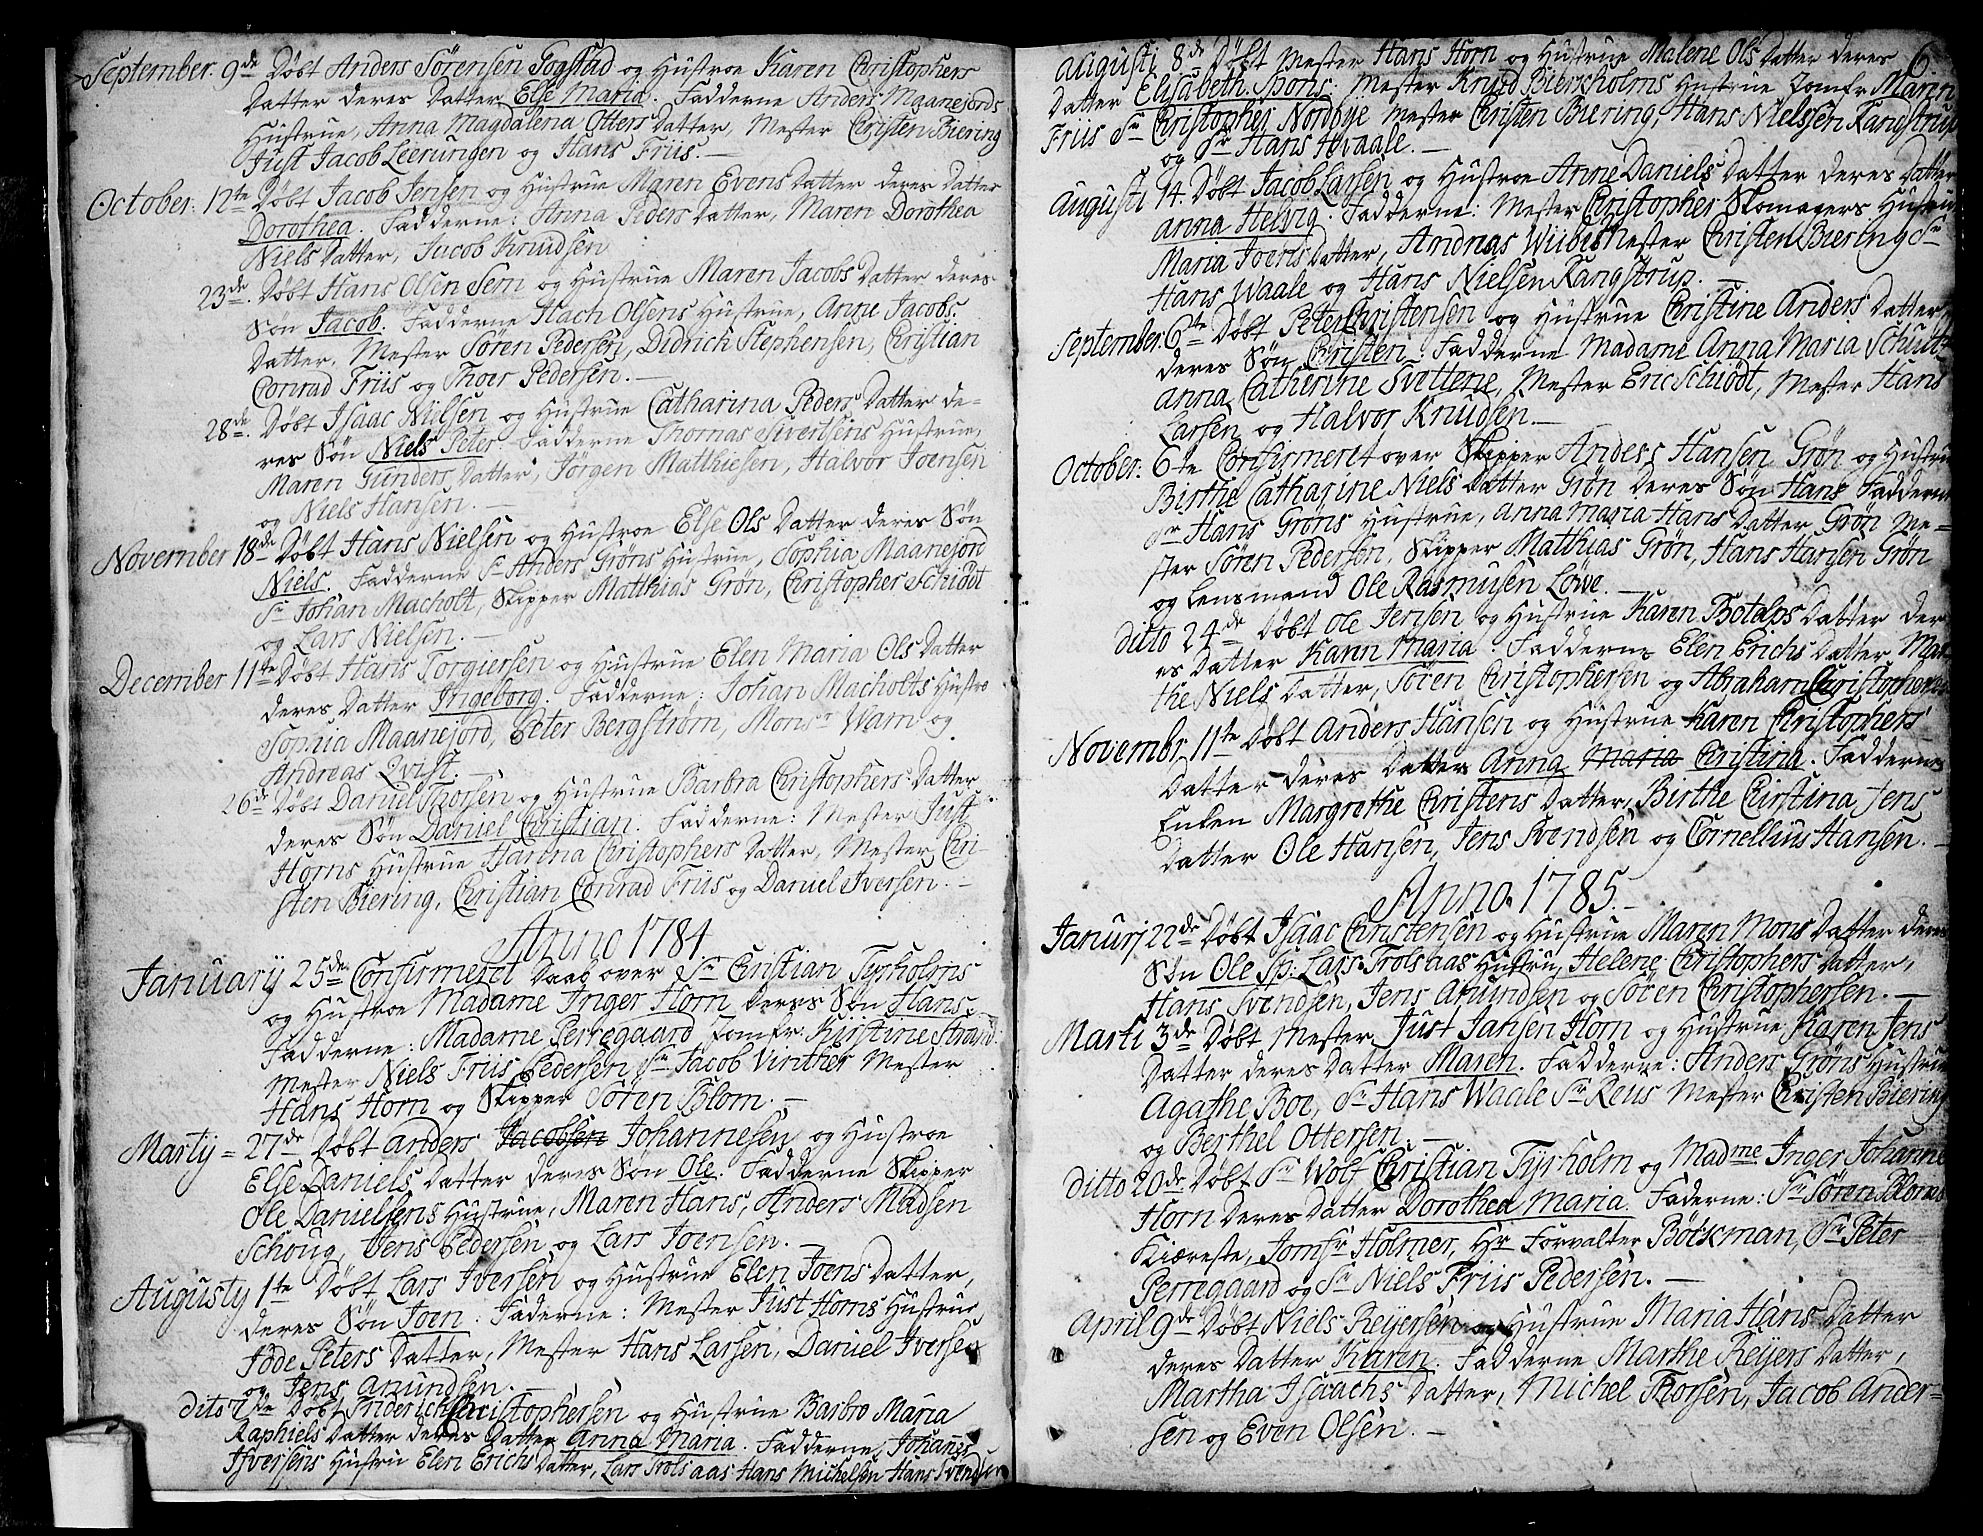 September. 9de Døbt Anders Sørensen Sogstad og Hustroe Karen Christophers
Datter deres Datter Else Maria. Fadderne Anders Maanejords
Hustrue, Anna Magdalena Otters Datter, Mester Christen Biering
Just Jacob Leerungen og Hans Friis.—
October: 12te Døbt Jacob Jensen og Hustrue Maren Evens Datter deres Datter
Dorothea. Fadderne: Anna Peders Datter, Maren Dorothea
Niels Datter, Jacob Knudsen
23de. Døbt Hans Olsen Sem og Hustrue Maren Jacobs Datter deres
Søn Jacob. Fadderne Hach Olsens Hustrue, Anne Jacobs.
Datter, Mester Søren Pedersen, Didrich Stephensen, Christian
Conrad Friis og Thoer Pedersen.—
28de. Døbt Isaac Nielsen og Hustrue Catharina Peders Datter de-
res Søn Niels Peter. Fadderne Thomas Sivertsens Hustrue,
Maren Gunders Datter, Jørgen Matthiesen, Halvor Joensen
og Niels Hansen.—
November 18de Døbt Hans Nielsen og Hustroe Else Ols Datter deres Søn
Niels. Fadderne Sr Anders Grøns Hustrue, Sophia Maanejord
Sr Johan Macholt, Skipper Matthias Grøn, Christopher Schiødt
og Lars Nielsen.—
December 11te Døbt Hans Torgiersen og Hustrue Elen Maria Ols Datter
deres Datter Ingeborg. Fadderne: Johan Macholts Hustro
Sophia Maanejord, Peter Bergstrøm, Monsr Wam og
Andreas Qvist.—
26de Døbt Daniel Thorsen og Hustrue Barbra Christophers Datter
deres Søn Daniel Christian. Fadderne: Mester Just
Horns Hustrue Karina Christophers Datter, Mester Chri-
sten Biering, Christian Conrad Friis og Daniel Iversen.—
Anno 1784
January 25de Confirmeret Daab over Sr Christian Tyrholms
og Hustroe Madame Inger Horn deres Søn Hans.
Fadderne: Madame Perregaard Jomfr. Kirstine Strand.
Mester Niels Friis Pedersen Sr Jacob Vinther Mester
Hans Horn og Skipper Søren Blom.—
Marty = 27de Døbt Anders Jacobsen Johannesen og Hustroe
Else Daniels Datter deres Søn Ole. Fadderne Skipper
Ole Danielsens Hustrue, Maren Hans, Anders Madsen
Schoug, Jens Pedersen og Lars Joensen.—
Augusty 1te Døbt Lars Iversen og Hustrue Elen Joens Datter,
deres Søn Joen. Faderne: Mester Just Horns Hustrue
Jøde Peters Datter, Mester Hans Larsen, Daniel Iversen
og Jens Anundsen.—
dito 7de Døbt Friderich Christophersen og Hustrue Barbro Maria
Raphiels Datter deres Datter Anna Maria. Fadderne, Johannes
Iversens Hustru Elen Erichs Datter, Lars Trolsaas Hans Michelsen Hans Svendsen
6.
Augusti 8de Døbt Mester Hans Horn og Hustrue Malene Ols Datter deres
Datter Elisabeth. Spons: Mester Knud Bierkholms Hustrue Jomfr Maren
Friis Sr Christopher Nordbye Mester Christen Biering, Hans Nielssen Kangstrup
og Sr Hans Hvaale.—
Augusti 14. Døbt Jacob Larsen og Hustroe Anne Daniels Datter deres Datter
Anna Helvig. Fadderne: Mester Christopher Skomagers Hustru
Maria Joens Datter, Andreas Wiibi Mester Christen Biering Sr
Hans Waale og Hans Nielsen Kangstrup.—
September 6te Døbt Peter Christensen og Hustrue Christine Anders Datter
deres Søn Christen. Fadderne Madame Anna Maria
Anna Catherine Svettene, Mester Eric Schiødt, Mester Hans
Larsen og Halvor Knudsen.—
October: 6te Confirmeret over Skipper Anders Hansen Grøn og Hustrue
Birthe Catharine Niels Datter Grøn deres Søn Hans Fadderne
Sr Hans Grøns Hustrue, Anna Maria Hans Datter Grøn Me-
ster Søren Pedersen, Skipper Matthias Grøn, Hans Hansen Grøn
og Lensmand Ole Rasmusen Løwe.—
ditto 24de Døbt Ole Jensen og Hustrue Karen Botolps Datter der
es Datter Karen Maria. Fadderne Elen Erichs Datter Mar-
the Niels Datter, Søren Christophersen og Abraham Christophersen
Novembr. 11te Døbt Anders Hansen og Hustrue Karen Christophers
Datter deres Datter Anna Maria Christina. Fadderne
Enken Margrethe Christens Datter, Birthe Cirstina Jens
Datter Ole Hansen, Jens Svendsen og Cornelius Hansen.—
Anno. 1785.—
Janurj 22de Døbt Isaac Christensen og Hustrue Maren Mons Datter deres
Søn Ole Sp: Lars Trolsaas Hustru, Helene Christophers Datter,
Hans Svendsen, Jens Anundsen og Søren Christophersen.—
Marti 3de Døbt Mester Just Jansen Horn og Hustrue Karen Jens
Datter deres Datter Maren. Fadderne: Anders Grøns Hustrue
Agathe Boe, Sr Hans Waale Sr Reus Mester Christen Biering
og Berthel Ottersen.—
ditto 20de Døbt Sr Wolf Christian Tyrholm og Madme Inger Johanne
Horn deres Datter Dorothea Maria. Faderne: Sr Søren Bloms
Kiæreste, Jomfr Holmer, Hr Forvalter Bøckman, Sr Peter
Perregaard og Sr Niels Friis Pedersen.—
April 9de Døbt Niels Reijersen og Hustrue Maria Hans Datter
deres Datter Karen. Fadderne Marthe Reijers Datter,
Martha Isaachs Datter, Michel Thorsen, Jacob Ander-
sen og Even Olsen.—